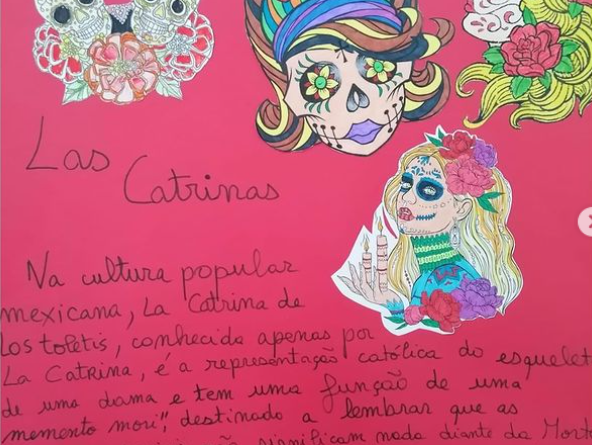 Las
Catrinas
Na cultura popular
mexicana, La Catrina de
Los toletis, conhecida apenas por
La Catrina, é a representação católica do esquelet
de uma dama e tem uma função de uma
"memento mori", destinado a lembrar que as
significam nada diante da Morte